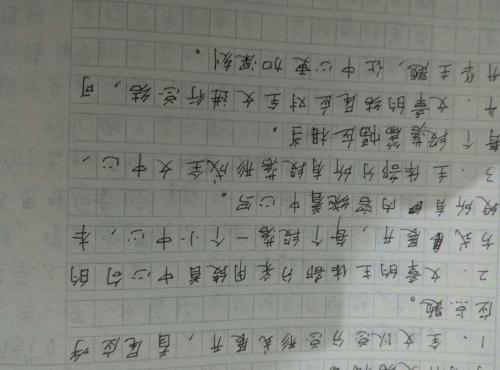 1．全文以总分总形式展开，首尾应呼
应点题。
2．文章的主体部分采用段首中心句的
方式展开，每个段落一个小中心，本
段所有内容绕着中心写。
3．主体部分所有段落形成全文中心，
每个段落篇幅应相当。
4．文章的结尾应对全文进行总结，可
升华主题，让中心更加深刻。